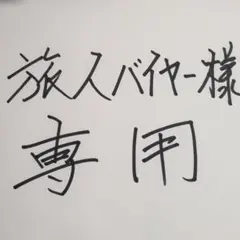 旅人バイヤー様
専用